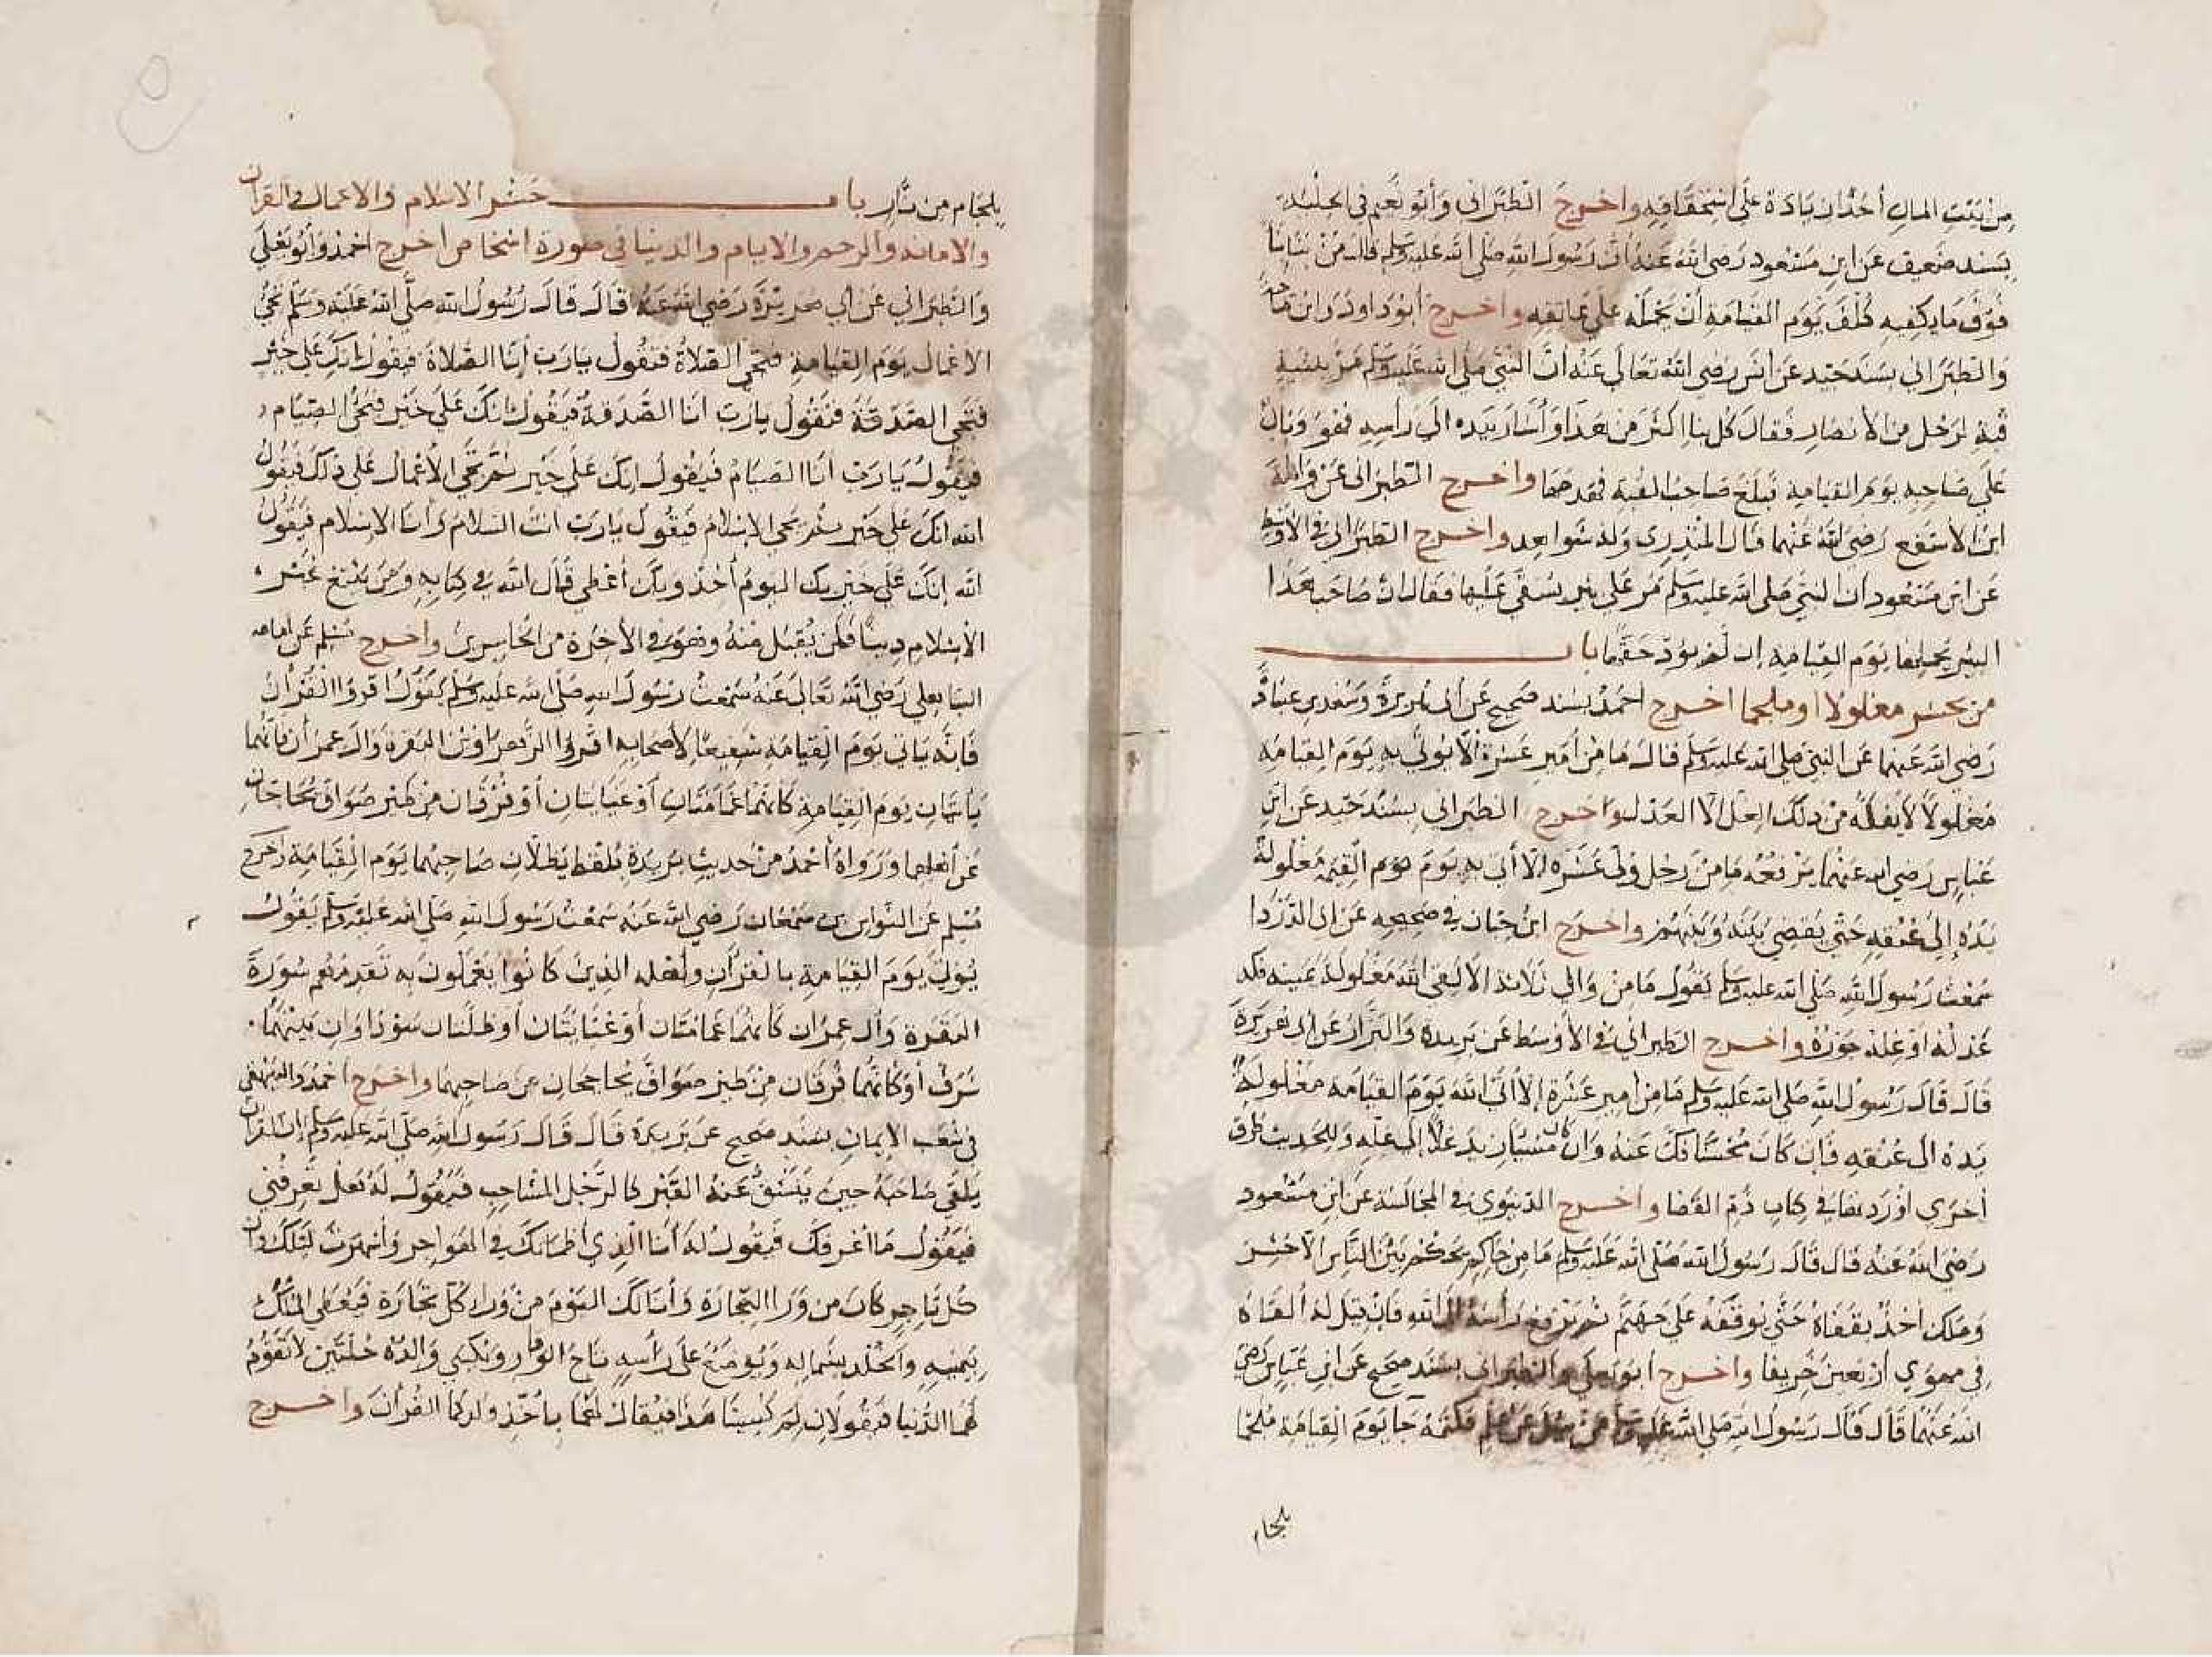 من بيت المال أخذ از يادة على استحقاقه واخرج الطبراني وأبو نعيم في الحلية
بسند ضعيف عن ابن مسعود رضى الله عنه ان رسول الله صلى الله عليه وسلم قال من بنا بنا
فوق ما يكفيه كلف يوم القيامة أن يحمله على عاتقه واخرج أبو داود وابن ماجه
والطبراني بسند جيد عن انس رضي الله تعالى عنه ان النبي صلى الله عليه وسلم مر ببنية
قبة لرجل من الأنصار فقال كل بنا اكثر من هذا وأشار بيده الى رأسه فهو وبال
على صاحبه يوم القيامة فبلغ صاحب القبة فهدمها واخرج الطبراني عن واثلة
ابن الأسقع رضى الله عنهما قال المنذري وله شواهد واخرج الطبراني في الاوسط
عن ابن مسعود ان النبي صلى الله عليه وسلم مر على بئر يسقى عليها فقال ان صاحب هذا
البئر يحملها يوم القيامة ان لم يؤد حقها باب
من يحشر مغلولا او ملجما اخرج احمد بسند صحيح عن أبي هريرة وسعد بن عبادة
رضى الله عنهما عن النبي صلى الله عليه وسلم قال ما من أمير عشرة الا يؤتي به يوم القيامة
مغلولا لا يفكه من ذلك الغل الا العدل واخرج الطبراني بسند جيد عن ابن
عباس رضى الله عنهما يرفعه ما من رجل ولى عشرة الا أتي به يوم يوم القيمة مغلولة
يده إلى عنقه حتى يقضى بينه وبينهم واخرج ابن حبان في صحيحه عن ابي الدردا
سمعت رسول الله صلى الله عليه وسلم يقول ما من والي ثلاثة الا لقى الله مغلولة يمينه فكه
عدله او غله جوره واخرج الطبراني في الأوسط عن بريدة والبزار عن ابي هريرة
قال قال رسول الله صلى الله عليه وسلم ما من أمير عشرة إلا أتى الله يوم القيامة مغلولة
يده الى عنقه فإن كان محسنا فك عنه وان كان مسيئا زيد غلا إلى غله وللحديث طرق
أخرى اوردتها في كتاب ذم القضا واخرج الدينوري في المجالسة عن ابن مسعود
رضى الله عنه قال قال رسول الله صلى الله عليه وسلم ما من حاكم يحكم بين الناس الا حشر
وملك اخذ بقفاه حتى يوقفه على جهنم ثم يرفع رأسه الى الله فان قيل له ألقه ألقاه
في مهوى أربعين خريفا واخرج أبو يعلى والطبراني بسند صحيح عن ابن عباس رضي
الله عنهما قال قال رسول الله صلى الله عليه وسلم من سئل عن علم فكتمه جا يوم القيامة ملجما
بلجام
بلجام من نار باب حشر الاسلام والاعمال والقران
والامانة والرحم والايام والدنيا في صورة اشخاص اخرج احمد وأبو يعلى
والطبراني عن أبي هريرة رضي الله عنه قال قال رسول الله صلى الله عليه وسلم تجئ
الأعمال يوم القيامة فتجئ الصلاة فتقول يا رب أنا الصلاة فيقول انك على خير
فتجئ الصدقة فتقول يا رب انا الصدقة فيقول انك على خير فتجئ الصيام
فيقول يا رب انا الصيام فيقول انك على خير ثم تجئ الأعمال على ذلك فيقول
الله انك على خير ثم يجئ الإسلام فيقول يا رب انت السلام وأنا الإسلام فيقول
الله إنك على خير بك اليوم أخذ وبك أعطي قال الله في كتابه ومن يبتغ غير
الإسلام دينا فلن يقبل منه وهو في الآخرة من الخاسرين وأخرج مسلم عن أمامة
الباهلي رضى الله تعالى عنه سمعت رسول الله صلى الله عليه وسلم يقول اقروا القرآن
فانه ياتي يوم القيامة شفيعا لأصحابه اقروا الزهراوين البقرة وال عمران فانهما
يأتيان يوم القيامة كأنهما غمامتان أو غيايتان أو فرقان من طير صواف يحاجان
عن أهلهما ورواه أحمد من حديث بريدة بلفظ يظلان صاحبهما يوم القيامة واخرج
مسلم عن النواس بن سمعان رضي الله عنه سمعت رسول الله صلى الله عليه وسلم يقول
يؤتى يوم القيامة بالقرآن واهله الذين كانوا يعملون به تقدمهم سورة
البقرة وال عمران كأنهما غمامتان أو غيابتان أو ظلتان سوداوان بينهما
شرف أو كأنهما فرقان من طير صواف يحاججان عن صاحبهما واخرج احمد والبيهقي
في شعب الإيمان بسند صحيح عن بريدة قال قال رسول الله صلى الله عليه وسلم إن القرآن
يلقى صاحبه حين ينشق عنه القبر كالرجل الشاحب فيقول له هل تعرفني
فيقول ما أعرفك فيقول له أنا الذي أظمأتك في الهواجر وأسهرت ليلك وان
كل تاجر كان من ورا التجارة وأنا لك اليوم من وراء كل تجارة فيعطى الملك
بيمينه والخلد بشماله ويوضع على رأسه تاج الوقار ويكسى والداه حلتين لا تقوم
لهما الدنيا فيقولان لم كسينا هذا فيقال لهما بأخذ ولدكما القرآن واخرج